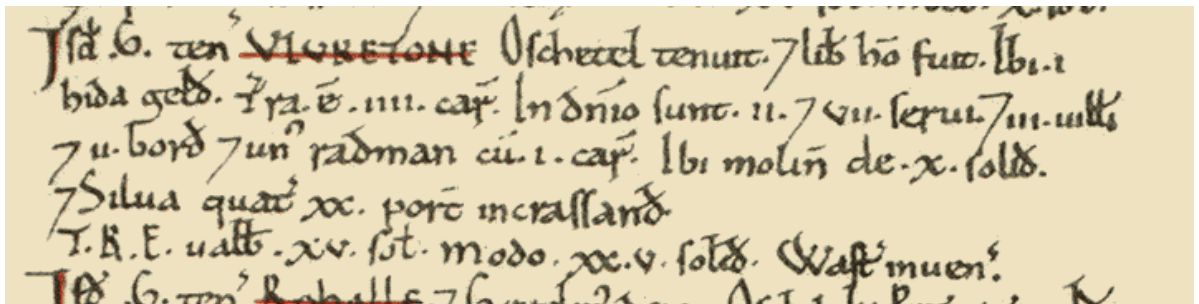 Isd̄ .G. ten' VLVRETONE Oschetel tenuit. ⁊ lib̄ hō fuit. Ibi .i
hida geld̄. Tra. ē. iiii. car̄. In dn̄io sunt. ii. ⁊ vii. serui. ⁊ iii. uill̄i
⁊ u. bord̄ ⁊ un' radman cū. i. car̄. Ibi molin̄ de. x. solid̄.
⁊ Silua quat' xx. porc̄ incrassand̄.
T.R.E. ualb̄. xv. sol̄. modo. xx.v. solid̄. Wast' inuen'.
Isd̄ .G. ten'